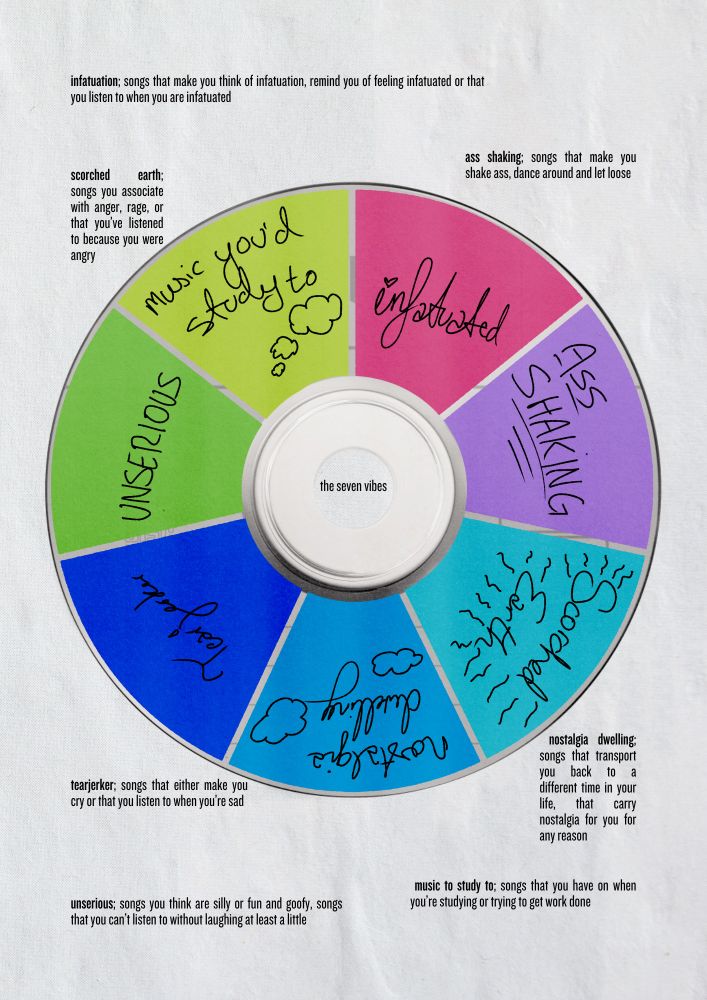 infatuation; songs that make you think of infatuation, remind you of feeling infatuated or that
you listen to when you are infatuated
ass shaking; songs that make you
shake ass, dance around and let loose
scorched earth;
songs you associate
with anger, rage, or
that you've listened
to because you were
angry
music you'd
study to
infatuated
ASS
SHAKING
UNSERIOUS
the seven vibes
Scorched
Earth
Tearjerker
nostalgia
dwelling
nostalgia dwelling;
songs that transport
you back to a
different time in your
life, that carry
nostalgia for you for
any reason
tearjerker; songs that either make you
cry or that you listen to when you're sad
music to study to; songs that you have on when
you're studying or trying to get work done
unserious; songs you think are silly or fun and goofy, songs
that you can't listen to without laughing at least a little